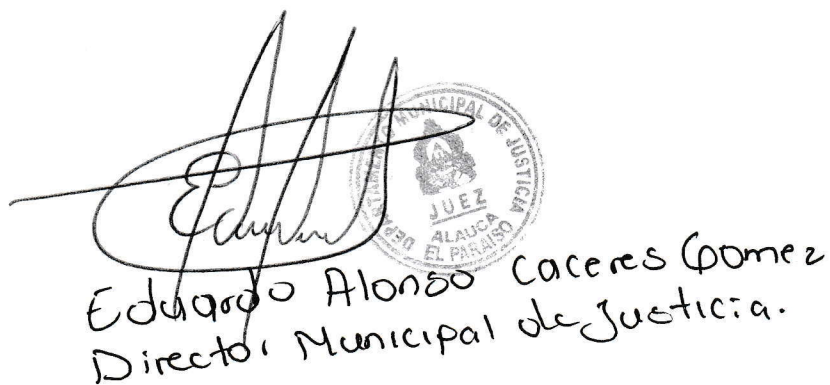 DEPARTAMENTO MUNICIPAL DE JUSTICIA
JUEZ
ALAUCA
EL PARAISO
Eduardo Alonso Caceres Gomez
Director Municipal de Justicia.